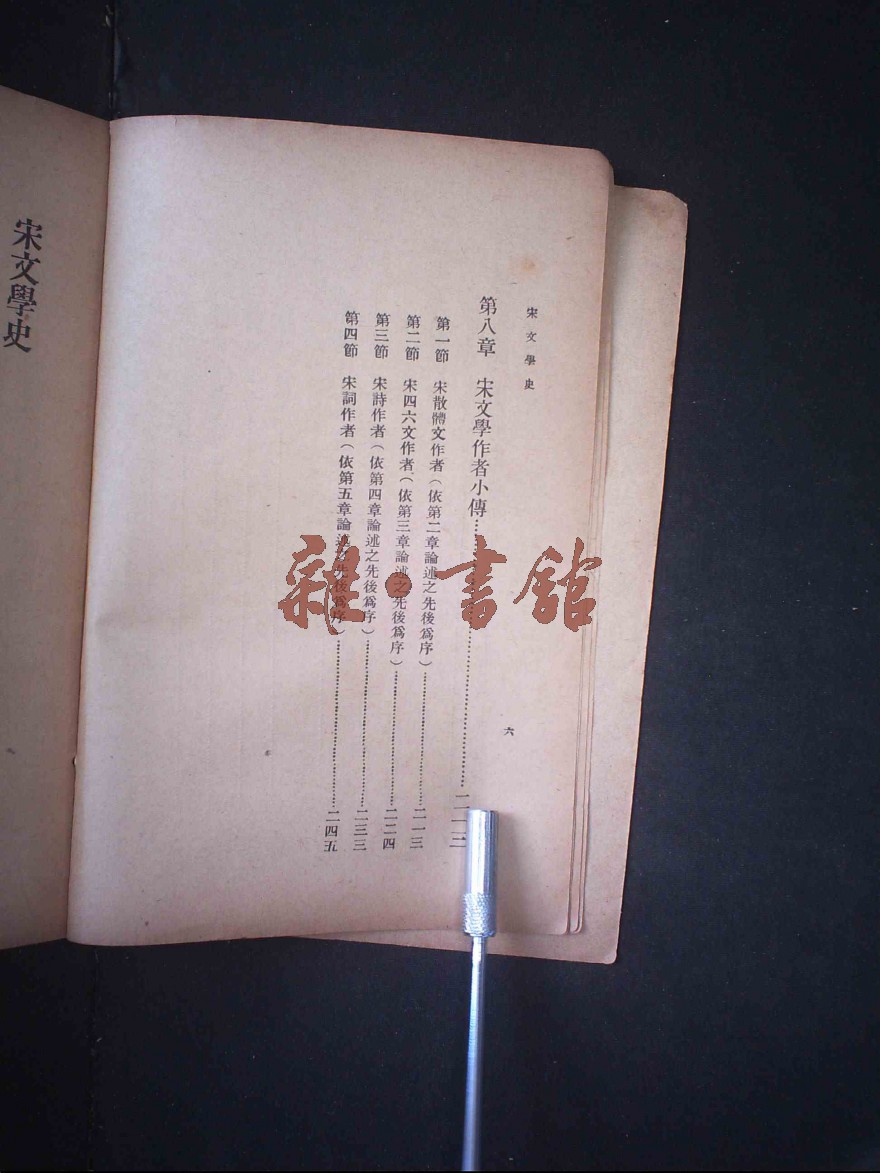 宋文學史
六
第八章　宋文學作者小傳……二一三
第一節　宋散體文作者（依第二章論述之先後爲序）……二一三
第二節　宋四六文作者（依第三章論述之先後爲序）……二二四
第三節　宋詩作者（依第四章論述之先後爲序）……二三三
第四節　宋詞作者（依第五章論述之先後爲序）……二四五
宋文學史
雜·書館